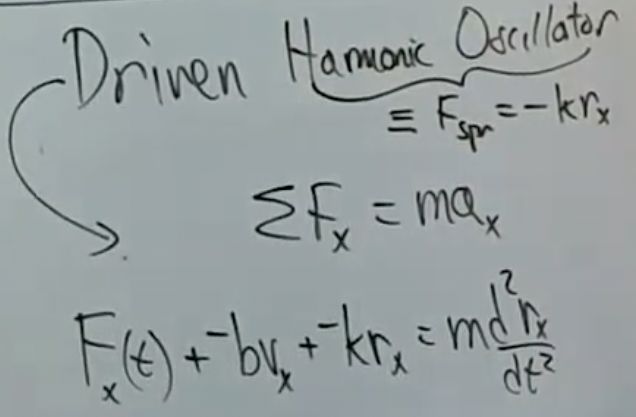 Driven Harmonic Oscillator
≡ F_spr = -kr_x
ΣF_x = ma_x
F_x(t) + -bv_x + -kr_x = m d²r_x/dt²